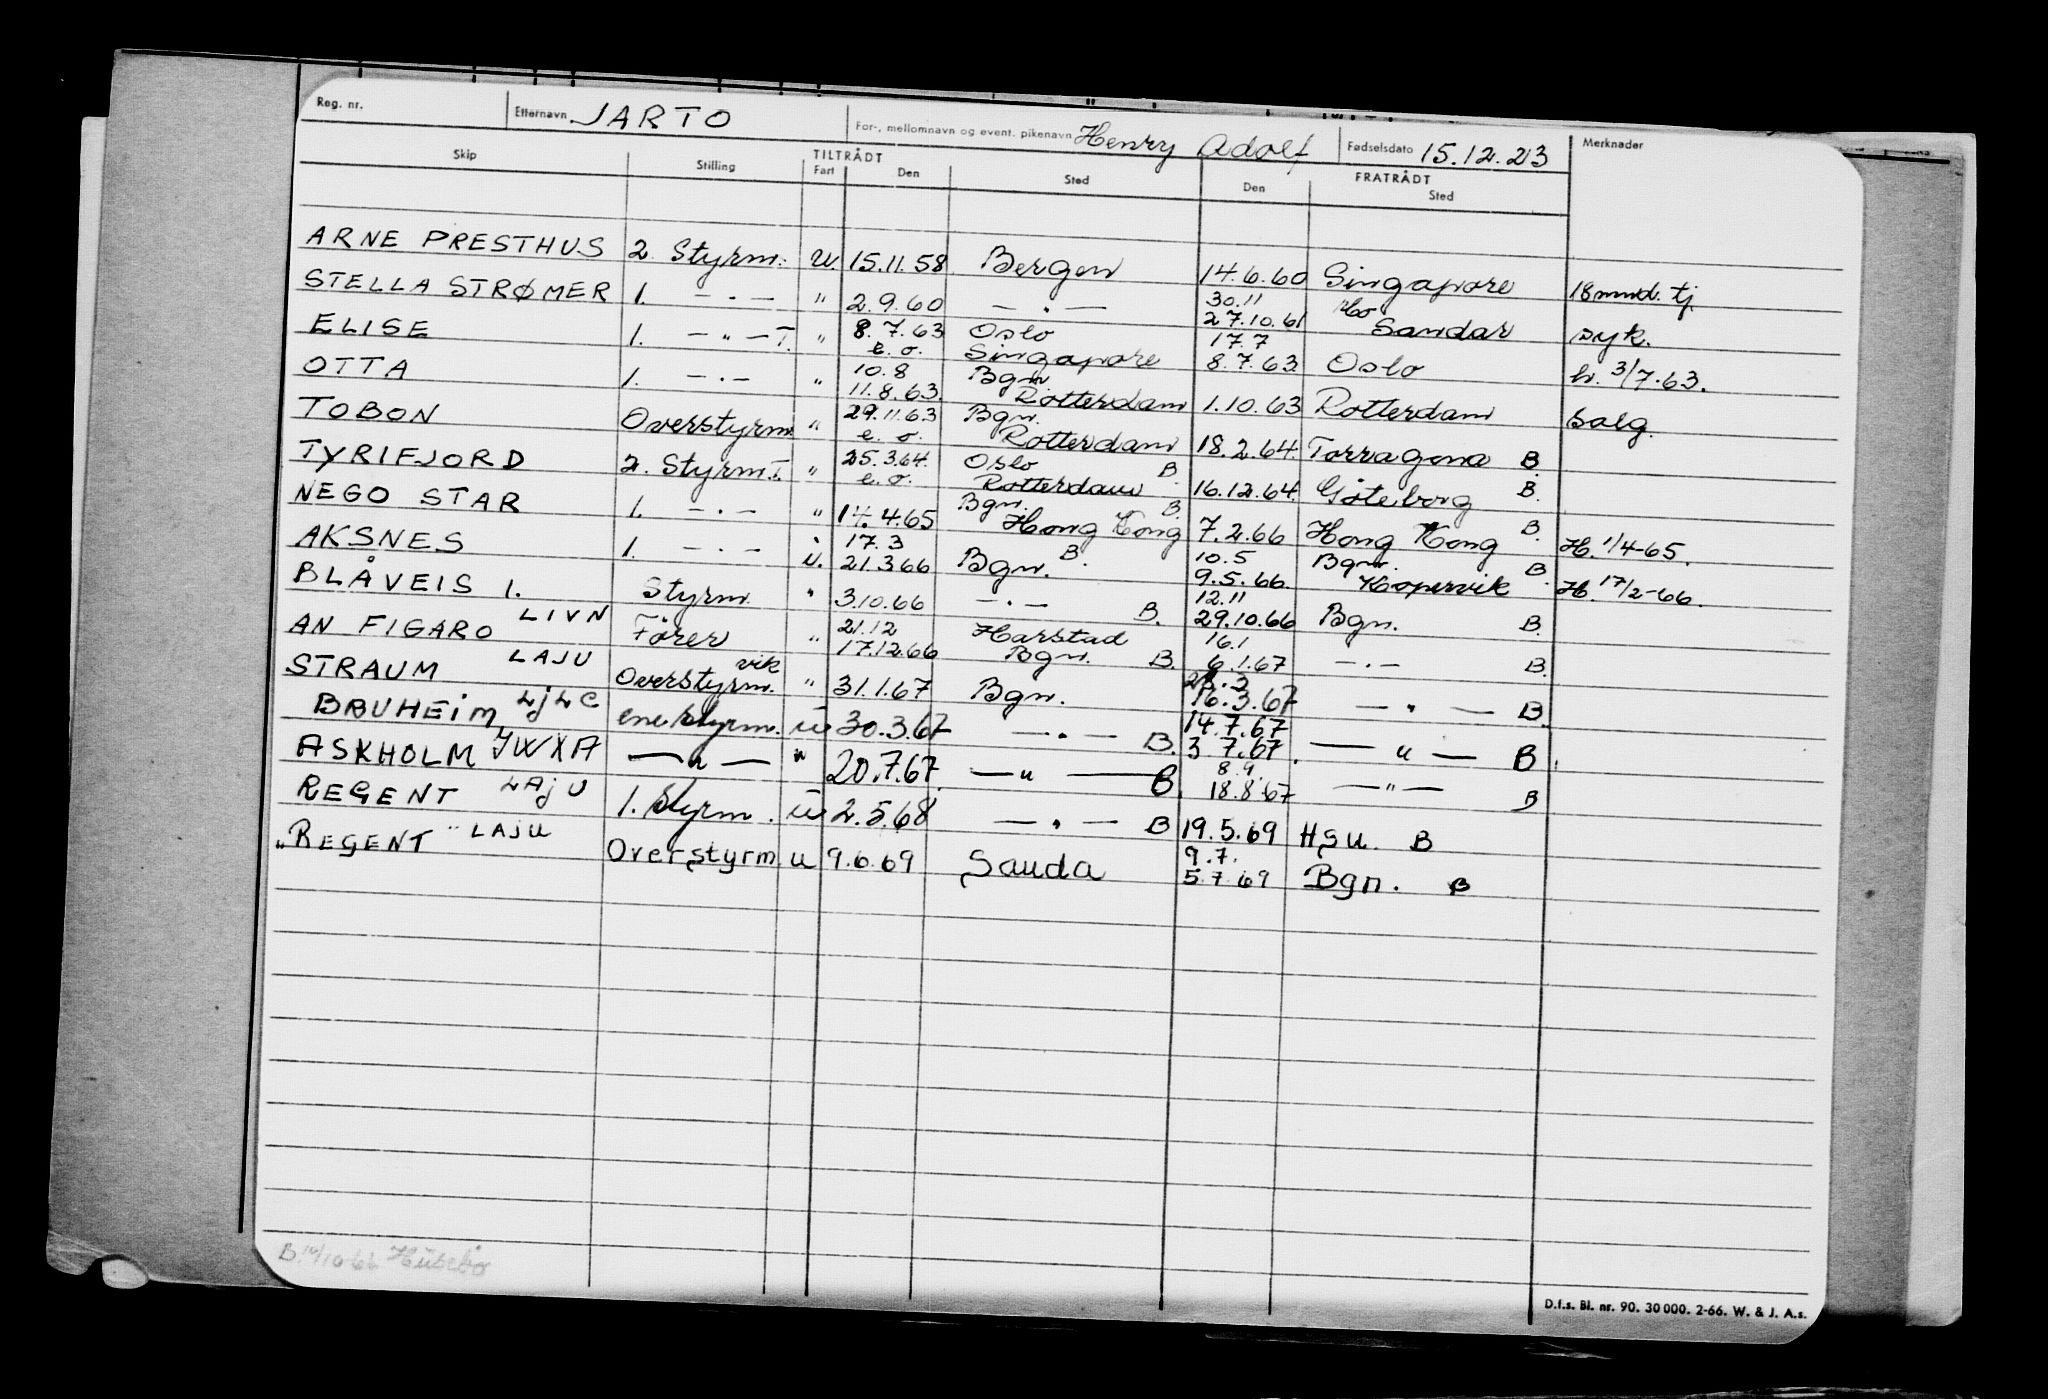 Reg. nr. Etternavn JARTO For-, mellomnavn og event. pikenavn Henry Adolf Fødselsdato 15.12.23 Merknader
Skip Stilling TILTRÅDT Fart Den Sted FRATRÅDT Den Sted
ARNE PRESTHUS 2. Styrm. U. 15.11.58 Bergen 14.6.60 Singapore 18 mnd. tj.
STELLA STRØMER 1. — . — " 2.9.60 — . — 30.11 27.10.61 Sandar syk.
ELISE 1. — " — T. " 8.7.63 e.o. Oslo Singapore 17.7 8.7.63 Oslo h. 3/7.63.
OTTA 1. — . — " 10.8 11.8.63. Bgn. Rotterdam 1.10.63 Rotterdam salg.
TOBON Overstyrm. " 29.11.63 e.o. Bgn. Rotterdam 18.2.64. Tarragona B.
TYRIFJORD 2. Styrm. T. " 25.3.64. e.o. Oslo Rotterdam B. 16.12.64. Göteborg B.
NEGO STAR 1. — . — " 14.4.65 Bgn. Hong Kong B. 7.2.66 Hong Kong B. H. 1/4-65.
AKSNES 1. — . — U. 17.3 21.3.66 Bgn. B. 10.5 9.5.66. Bgn. Kopervik B. H. 17/2-66.
BLÅVEIS 1. Styrm. " 3.10.66 — . — B. 12.11 29.10.66 Bgn. B.
AN FIGARO LIVN Förer " 21.12 17.12.66 Harstad Bgn. B. 16.1 6.1.67 — . — B.
STRAUM LAJU Overstyrm. vik " 31.1.67 Bgn. 16.3.67 — " — B.
BRUHEIM LJLC enestyrm. u 30.3.67 — . — B. 14.7.67 3 7.67. — u — B.
ASKHOLM JWXA — u — " 20.7.67. — u — B. 8.9. 18.8.67 — " — B
REGENT LAJU 1. Styrm. u 2.5.68 — . — B 19.5.69 HSU. B
"REGENT" LAJU Overstyrm u 9.6.69 Sauda 9.7. 5.7.69 Bgn. B
Husebø
D.f.s. Bl. nr. 90. 30 000. 2-66. W. & J. A.s.